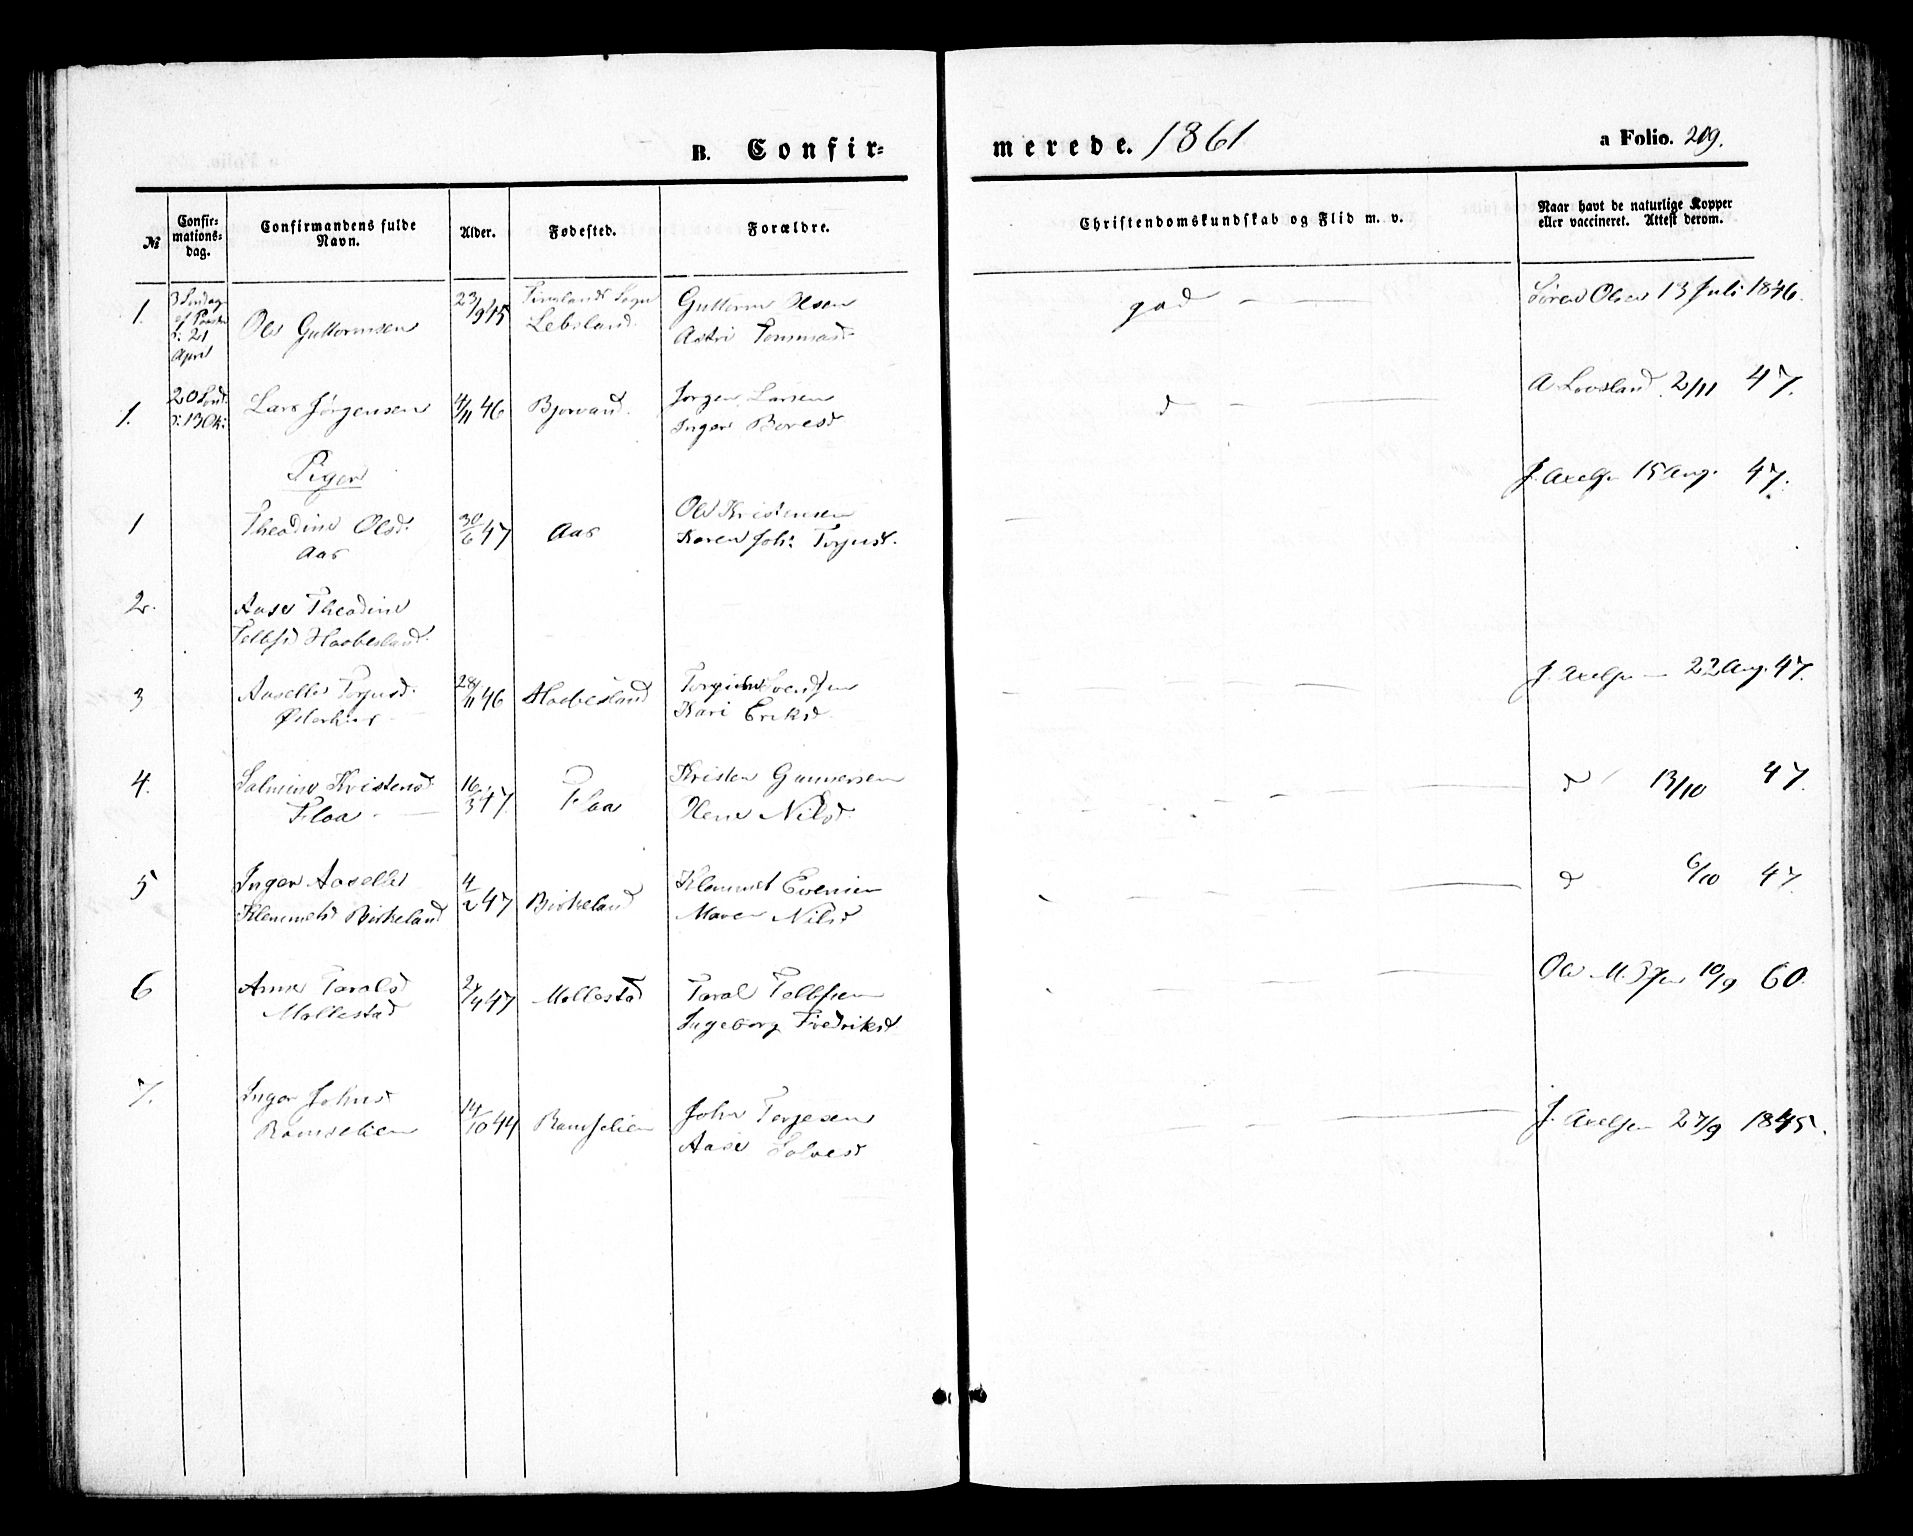 B. Confir-
merede. 1861
a Folio. 209.
№
Confir-
mations-
dag.
Confirmandens fulde
Navn.
Alder.
Fødested.
Forældre.
Christendomskundskab og Flid m. v.
Naar havt de naturlige Kopper
eller vaccineret. Attest derom.
1.
3 Søndag
ef Paaske
d: 21
April
Ole Guttormsen
23/9 45
Finslands Sogn
Lebsland
Guttorm Olsen
Astri Tommasd
god — —
Søren Olsen 13 Juli 1846.
1.
20 Sønd.
d: 13 Ok:
Lars Jørgensen
4/11 46
Bjorvand.
Jørgen Larsen
Inger Boresd
d — —
A Lovsland 2/11 47.
Piger
1
Theodine Olsd.
Aas
30/6 47
Aas
Ole Kristensen
Karen Joh: Torjusd.
J. Axelsn 15 Aug. 47.
2.
Aase Theodine
Tellefsd Haabesland
3
Aaselle Torjusd.
Østerhus
28/11 46
Haabesland
Svendsen
Kari Eriksd.
J. Axelsn — 22 Aug. 47.
4.
Salmine Kristensd
Flaa
16/3 47.
Flaa
Kristen Gunnersen
Nilsd.
d 13/10 47.
5
Inger Aaselle
Klemmetsd Birkeland
4/2 47
Birkeland
Klemmet Evensen
Maren Nilsd
d 6/10 47.
6
Anne Taralsd
Mollestad
2/4 47
Mollestad
Taral Tellefsen
Ingeborg Fredriksd.
Ole 10/9 60.
7.
Inger Johnsd
Ramselien
14/10 44
Ramselien
John Terjesen
Aase Solvesd
J. Axelsen 27/9 1845.